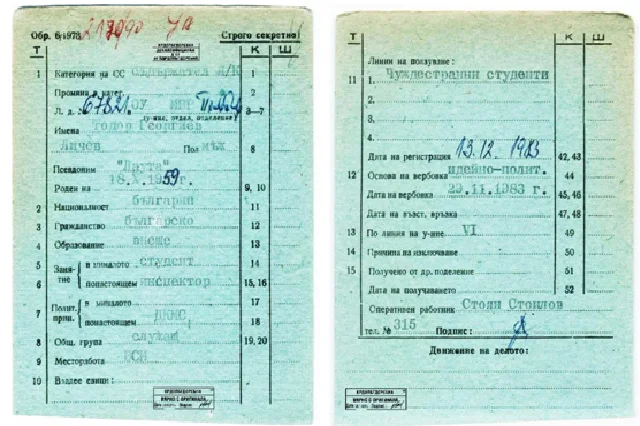 Обр. 6/1978
Строго секретно
Т
К
Ш
1 Категория на СС 1
Промяни в катег. 2
Л. д. № 67821. ОУ МВР 3—7
(у-ние, отдел, отделение)
Имена Тодор Георгиев
Личев Пол мъж 8
Псевдоним
Роден на 18.X.1959г. 9, 10
2 Националност българин 11
3 Гражданство българско 12
4 Образование висше 13
5 Заня- в миналото студент 14
6 тие понастоящем инспектор 15, 16
7 Полит. в миналото 17
прин. понастоящем ДКМС 18
8 Общ. група служащ 19, 20
9 Месторабота
10 Владее езици :
ВЯРНО С ОРИГИНАЛА
Т
К
Ш
Линия на ползуване :
11 1. Чуждестранни студенти
2.
3.
4.
Дата на регистрация 13.12. 1983 42, 43
12 Основа на вербовка идейно-полит. 44
Дата на вербовка 29.11.1983 г. 45, 46
Дата на възст. връзка 47, 48
13 По линия на у-ние VI 49
14 Причина на изключване 50
15 Получено от др. поделение 51
Дата на получаването 52
Оперативен работник Стоян Стоилов
тел. № 315 Подпис :
Движение на делото:
ВЯРНО С ОРИГИНАЛА